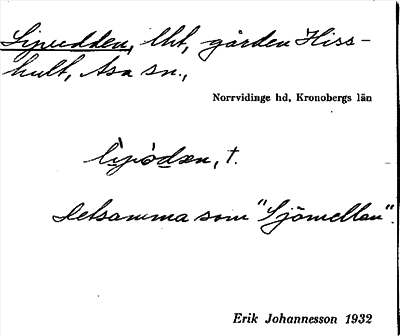 Sjöudden, lht, gården Hiss-
hult, Asa sn.,
Norrvidinge hd, Kronobergs län
t.
Detsamma som "Sjömellan".
Erik Johannesson 1932